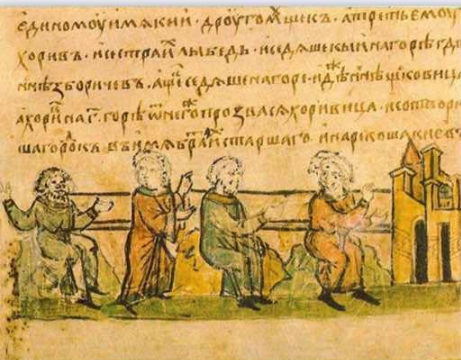 единомоу имѧ кии · дроугомꙋ щекъ · а третьемоу
хоривъ · и сестра и лыбедь · и седѧше кыи на горе гдѣ
ннѣ боричевъ · а щекъ седѧше на горе · идѣ ннѣ щековица
а хори на г҃ · горѣ ѿ него прозвасѧ хоривица · и сотвори
ша городокъ въ имѧ бра старшаго и нарекоша киевъ